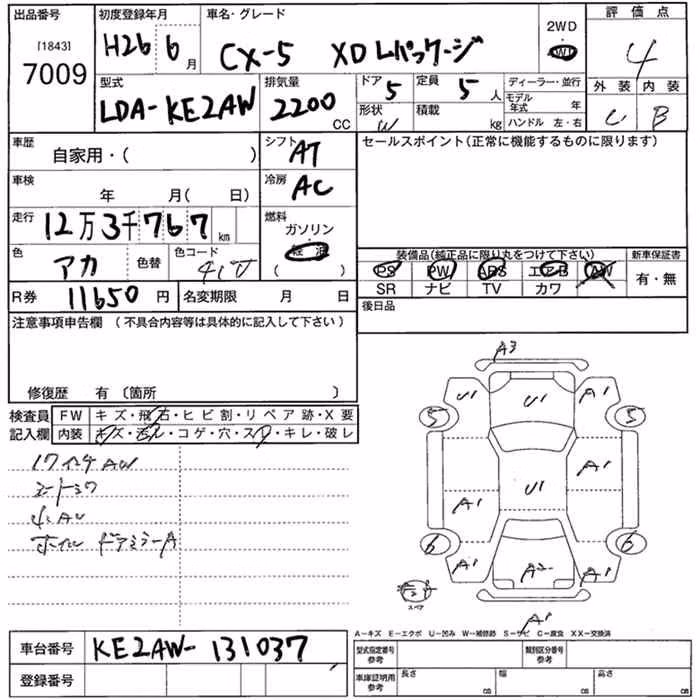 出品番号 初度登録年月 車名・グレード 2WD 評価点
[1843] 7009 H26 6月 CX-5 XD Lパッケージ 4WD 4
型式 排気量 ドア 定員 ディーラー・並行 外装 内装
LDA-KE2AW 2200 CC 5 5人 モデル年式 年 C B
形状 W 積載 kg ハンドル 左・右
車歴 自家用・( ) シフト AT セールスポイント(正常に機能するものに限ります)
車検 年 月( 日) 冷房 AC
走行 12万3千767km 燃料 ガソリン
色 アカ 色替 色コード 41V 軽油 ( )
装備品(純正品に限り丸をつけて下さい) 新車保証書
PS PW ABS エアB AW 有・無
SR ナビ TV カワ
R券 11650円 名変期限 月 日 後日品
注意事項申告欄 (不具合内容等は具体的に記入して下さい)
修復歴 有 〔箇所 〕
検査員 FW キズ・飛石・ヒビ割・リペア跡・X要
記入欄 内装 キズ・汚レ・コゲ・穴・スリ・キレ・破レ
17インチAW
シートシワ
小AU
ホイル ドアミラーA
A3
U1 U1 A1
5 5
A1
U1
A1
6 6
A1 A2 A1
スペア
A1
A-キズ E-エクボ U-凹み W-補修跡 S-サビ C-腐食 XX-交換済
車台番号 KE2AW-131037 型式指定番号 参考 類別区分番号 参考
登録番号 車庫証明用 参考 長さ cm 幅 cm 高さ cm